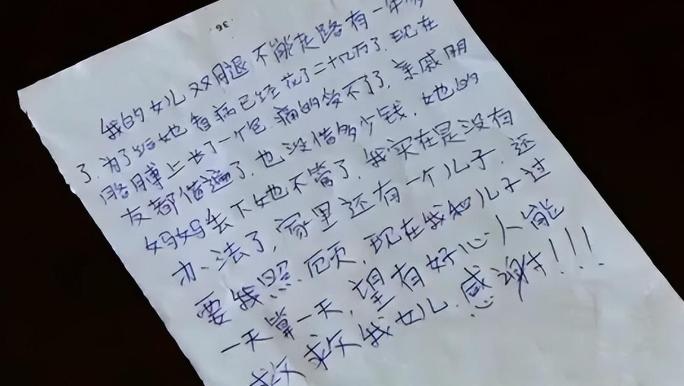 36
我的女儿双腿不能走路有一年多
了.为了给她看病已经花了二十几万了.现在
胳膊上长了一个包.痛的受不了了.亲戚朋
友都借遍了.也没借多少钱,她的
妈妈丢下她不管了.我实在是没有
办法了,家里还有一个儿子,还
要我照顾,现在我和儿子过
一天算一天,望有好心人能
救救我女儿.感谢!!!